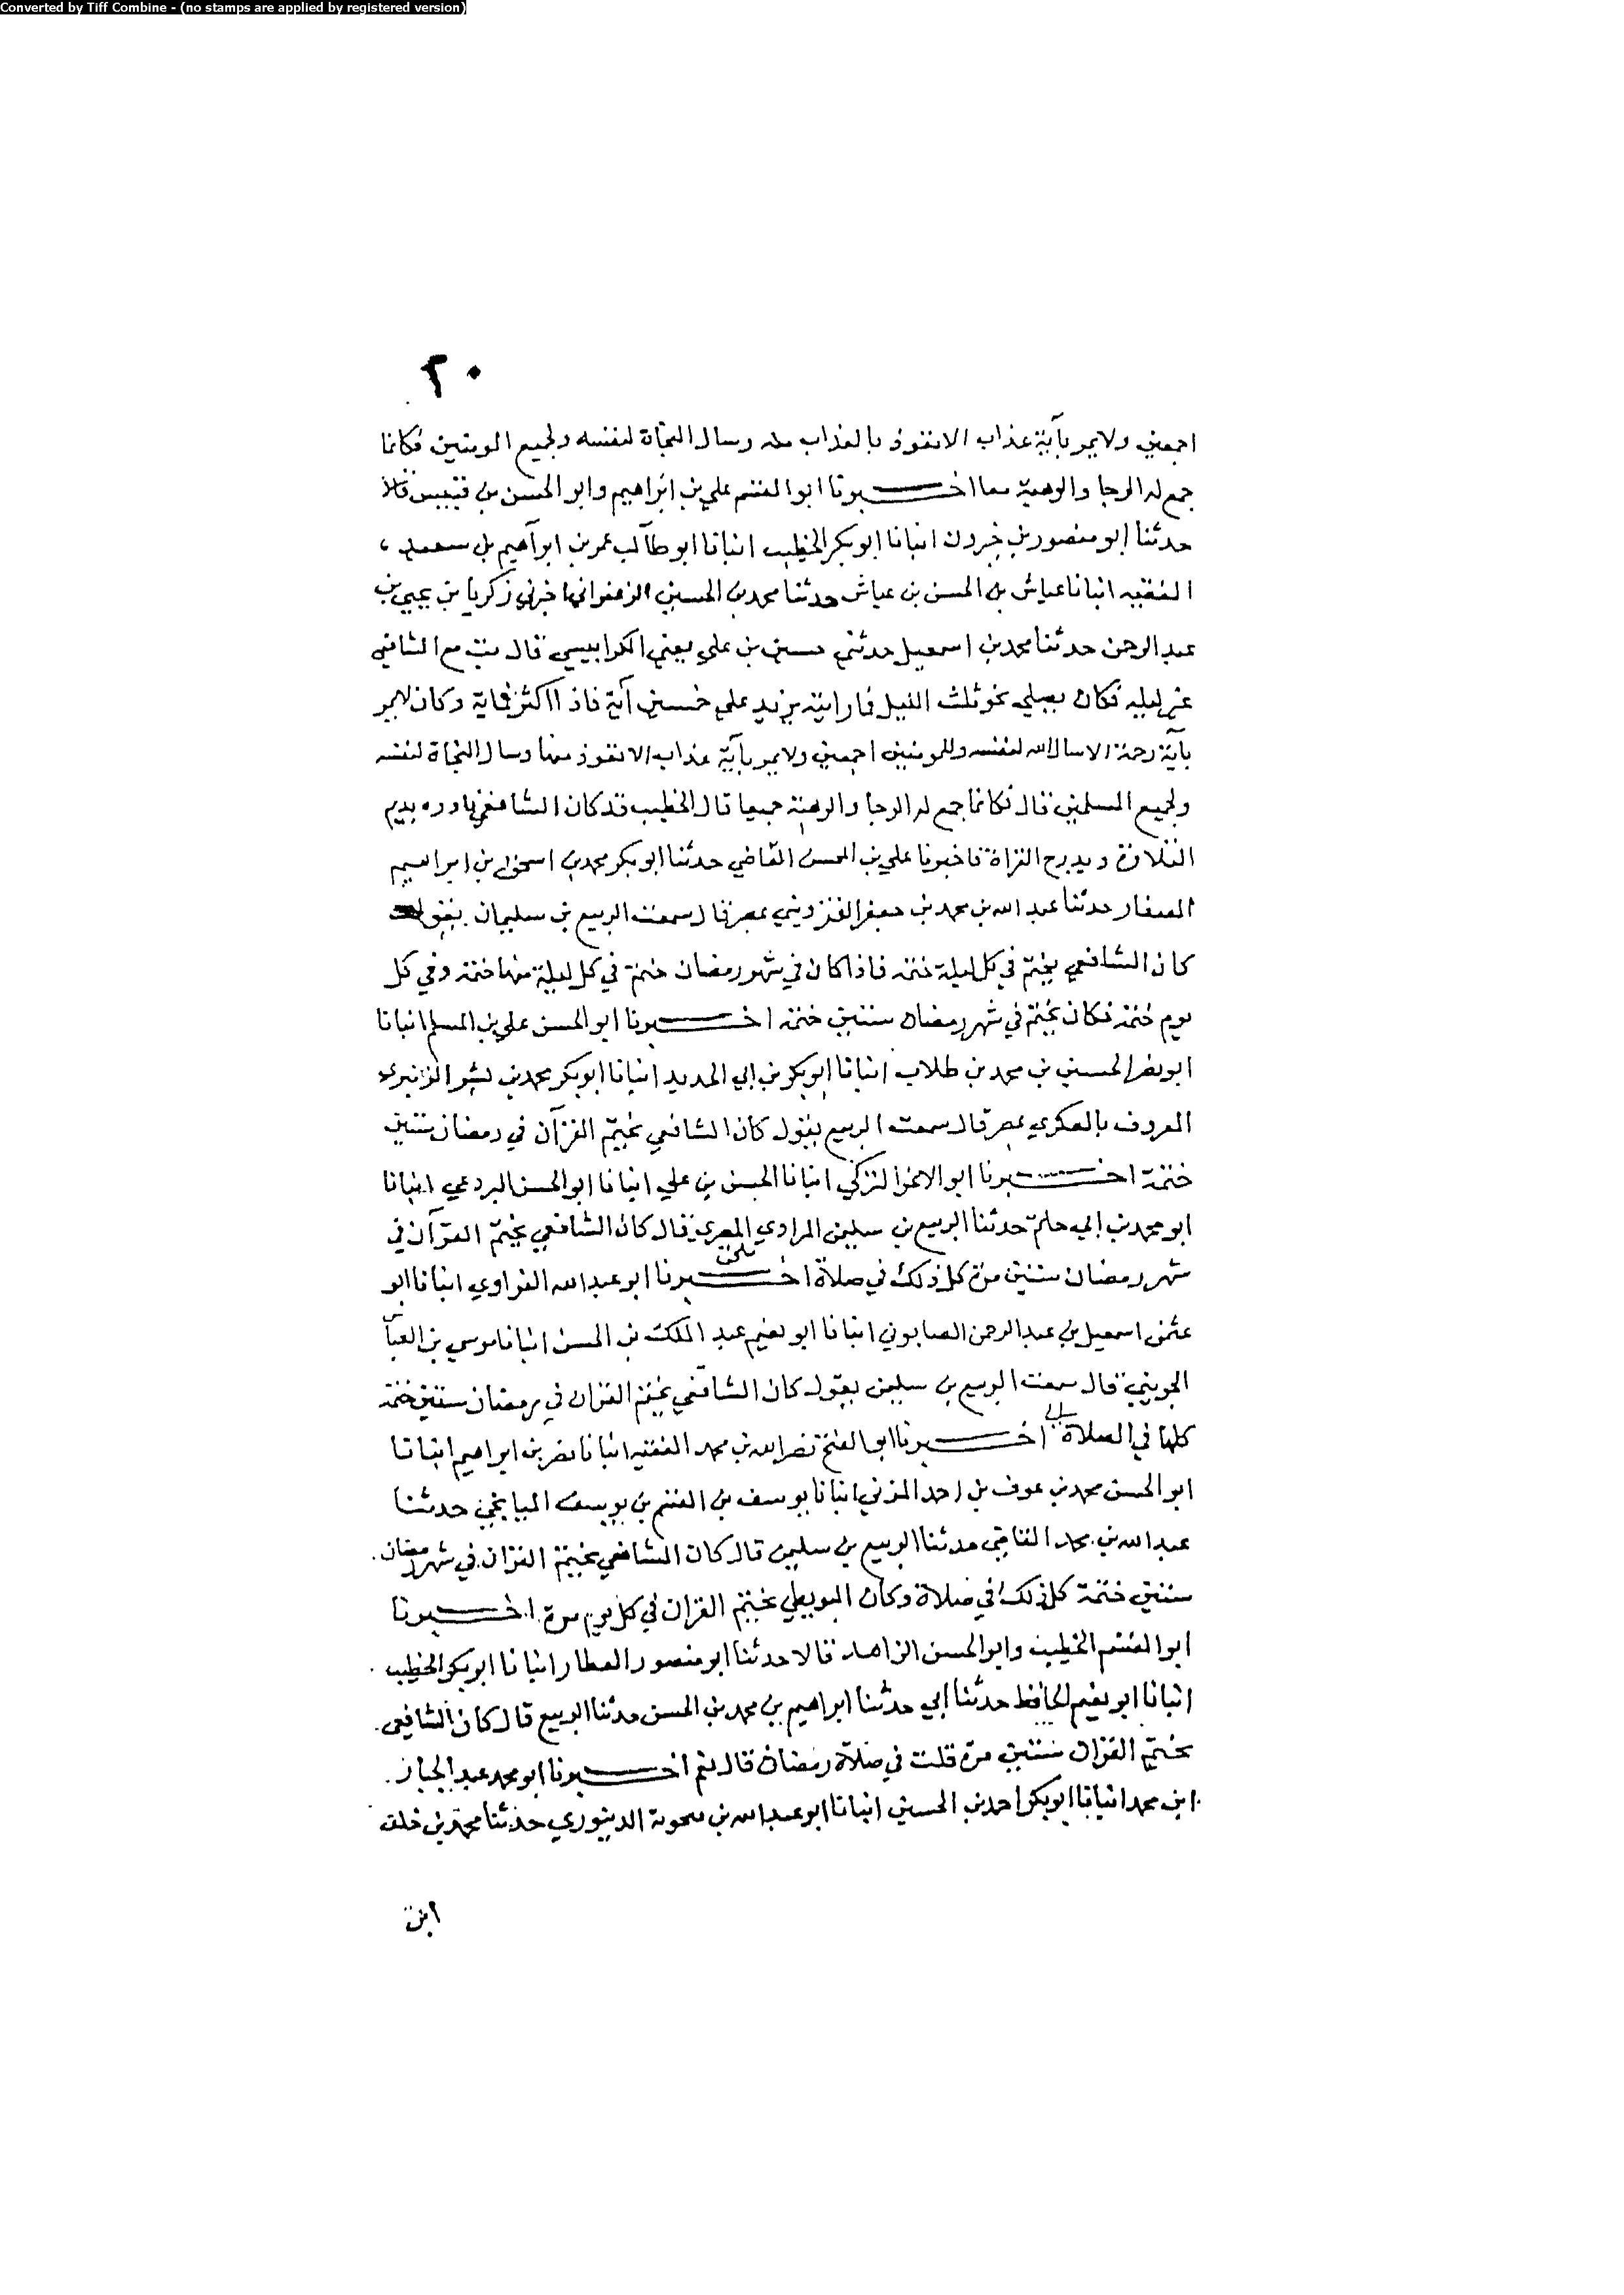 Converted by Tiff Combine - (no stamps are applied by registered version)
٢٠
اجمعين ولا يمر بآية عذاب الا تعوذ بالعذاب منه وسال النجاة لنفسه ولجميع المومنين فكانما
جمع له الرجا والرهبة معا اخبرنا ابو القسم علي بن ابراهيم وابو الحسن بن قبيس قالا
حدثنا ابو منصور بن خيرون انبانا ابو بكر الخطيب انبانا ابو طالب عمر بن ابراهيم بن سعيد
الفقيه انبانا عياش بن الحسن بن عياش حدثنا محمد بن الحسين الزعفراني اخبرني زكريا بن يحيى بن
عبد الرحمن حدثنا محمد بن اسمعيل حدثني حسين بن علي يعني الكرابيسي قال بت مع الشافعي
غير ليله فكان يصلي نحو ثلث الليل فما رايته يزيد على خمسين آية فاذا اكثر فماية وكان لا يمر
بآية رحمة الا سال الله لنفسه وللمومنين اجمعين ولا يمر بآية عذاب الا تعوذ منها وسال النجاة لنفسه
ولجميع المسلمين قال فكانما جمع له الرجا والرهبة جميعا قال الخطيب قد كان الشافعي باوره يديم
التلاوة ويدرج القراة فاخبرنا علي بن المحسن القاضي حدثنا ابو بكر محمد بن اسحق بن ابراهيم
الصفار حدثنا عبد الله بن محمد بن جعفر القزويني بمصر قال سمعت الربيع بن سليمان يقول
كان الشافعي يختم في كل ليلة ختمة فاذا كان في شهر رمضان ختم في كل ليلة منها ختمة وفي كل
يوم ختمة فكان يختم في شهر رمضان ستين ختمة اخبرنا ابو الحسن علي بن المسلم انبانا
ابو نصر الحسين بن محمد بن طلاب انبانا ابو بكر بن ابي الحديد انبانا ابو بكر محمد بن بشر الزنبري
المعروف بالعكري بمصر قال سمعت الربيع يقول كان الشافعي يختم القرآن في رمضان ستين
ختمة اخبرنا ابو الاعز التركي انبانا الحسن بن علي انبانا ابو الحسن البردعي انبانا
ابو محمد بن ابي حاتم حدثنا الربيع بن سليمن المرادي المصري قال كان الشافعي يختم القرآن في
شهر رمضان ستين مرة كل ذلك في صلاة اخبرنا ابو عبد الله الفراوي انبانا ابو
عثمن اسمعيل بن عبد الرحمن الصابوني انبانا ابو نعيم عبد الملك بن الحسن انبانا موسي بن العباس
الجويني قال سمعت الربيع بن سليمن يقول كان الشافعي يختم القران في رمضان ستين ختمة
كلها في الصلاة اخبرنا ابو الفتح نصر الله بن محمد الفقيه انبانا نصر بن ابراهيم انبانا
ابو الحسن محمد بن عوف بن احمد المزني انبانا يوسف بن القسم بن يوسف الميانجي حدثنا
عبد الله بن محمد القاضي حدثنا الربيع بن سليمن قال كان الشافعي يختم القران في شهر رمضان
ستين ختمة كل ذلك في صلاة وكان البويطي يختم القران في كل يوم مرة اخبرنا
ابو القسم الخطيب وابو الحسن الزاهد قالا حدثنا ابو منصور العطار انبانا ابو بكر الخطيب
انبانا ابو نعيم الحافظ حدثنا ابي حدثنا ابراهيم بن محمد بن الحسن حدثنا الربيع قال كان الشافعي
يختم القران ستين مرة قلت في صلاة رمضان قال نعم اخبرنا ابو محمد عبد الجبار
ابن محمد انبانا ابو بكر احمد بن الحسين انبانا ابو عبد الله بن الدينوري حدثنا محمد بن خلف
ابن